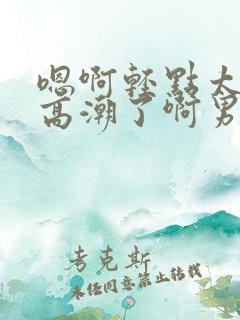 嗯啊轻点太
高潮了啊男
考克斯
未经同意禁止转载